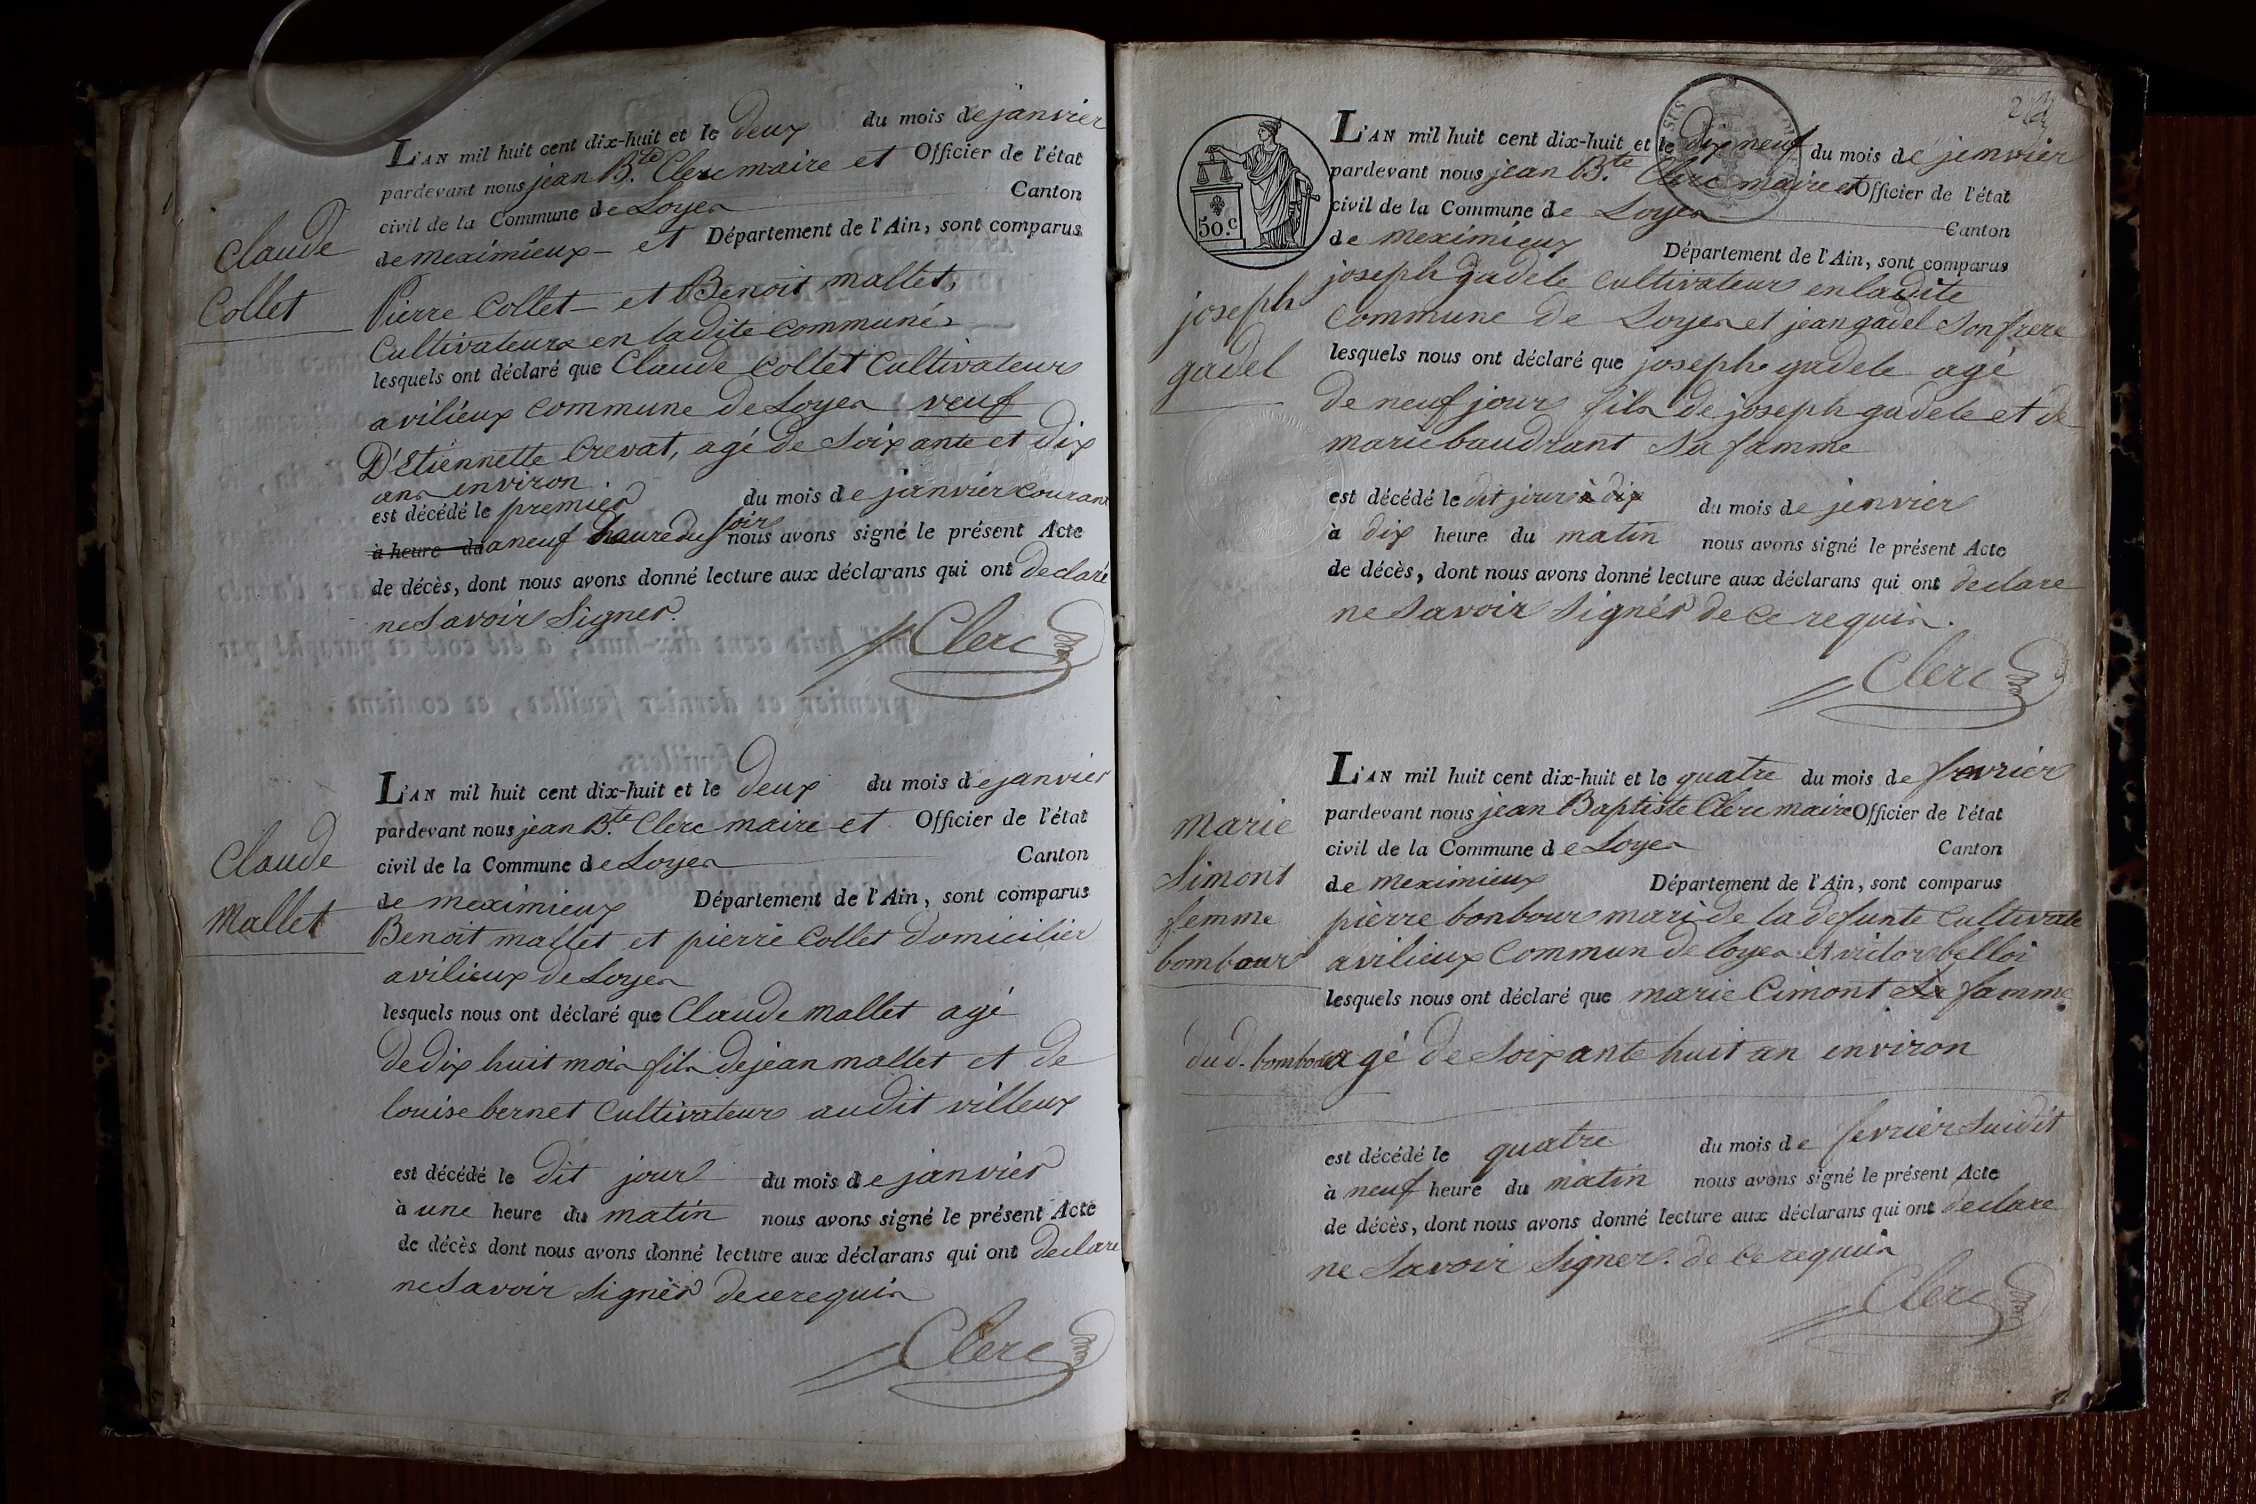 L'AN mil huit cent dix-huit et le deux du mois de janvier
pardevant nous jean B.te Clerc maire et Officier de l'état
civil de la Commune de Loyes Canton
de meximieux et Département de l'Ain, sont comparus
Claude
Collet
Pierre Collet et Benoit mallet,
Cultivateurs en ladite Commune
lesquels ont déclaré que Claude Collet Cultivateur
a vilieux commune de Loyes veuf
D'Etiennette Crevat, agé de Soixante et Dix
ans environ
est décédé le premier du mois de janvier courant
à heure du a neuf haure du soir nous avons signé le présent Acte
de décès, dont nous avons donné lecture aux déclarans qui ont declaré
ne Savoir Signer.
Clerc
L'AN mil huit cent dix-huit et le deux du mois de janvier
pardevant nous jean B.te Clerc maire et Officier de l'état
civil de la Commune de Loyes Canton
de meximieux Département de l'Ain, sont comparus
Claude
Mallet
Benoit mallet et pierre Collet domicilier
a vilieux de Loyes
lesquels nous ont déclaré que Claude mallet agé
de dix huit mois fils de jean mallet et de
louise bernet Cultivateur audit villeux
est décédé le dit jour du mois de janvier
à une heure du matin nous avons signé le présent Acte
de décès dont nous avons donné lecture aux déclarans qui ont declare
ne Savoir Signer de ce requis
Clerc
50.c
L'AN mil huit cent dix-huit et le dix neuf du mois de jenvier
pardevant nous jean B.te Clerc maire et Officier de l'état
civil de la Commune de Loyes Canton
de meximieux Département de l'Ain, sont comparus
joseph
gadel
joseph gadele Cultivateur en ladite
Commune de Loyes et jean gadel Son frere
lesquels nous ont déclaré que joseph gadele agé
de neuf jour fils de joseph gadele et de
marie baudrant Sa famme
est décédé le dit jour à dix du mois de jenvier
à dix heure du matin nous avons signé le présent Acte
de décès, dont nous avons donné lecture aux déclarans qui ont declare
ne Savoir Signer de ce requis.
Clerc
L'AN mil huit cent dix-huit et le quatre du mois de fevrier
pardevant nous jean Baptiste Clerc maire Officier de l'état
civil de la Commune de Loyes Canton
de meximieux Département de l'Ain, sont comparus
marie
Simont
femme
bombour
pierre bonbour mari de la defunte Cultivate
a vilieux Commun de loyes et
lesquels nous ont déclaré que marie Cimont Sa famme
du d. bombour agé de Soixante huit an environ
est décédé le quatre du mois de fevrier Suidit
à neuf heure du matin nous avons signé le présent Acte
de décès, dont nous avons donné lecture aux déclarans qui ont declare
ne Savoir Signer. de ce requis
Clerc